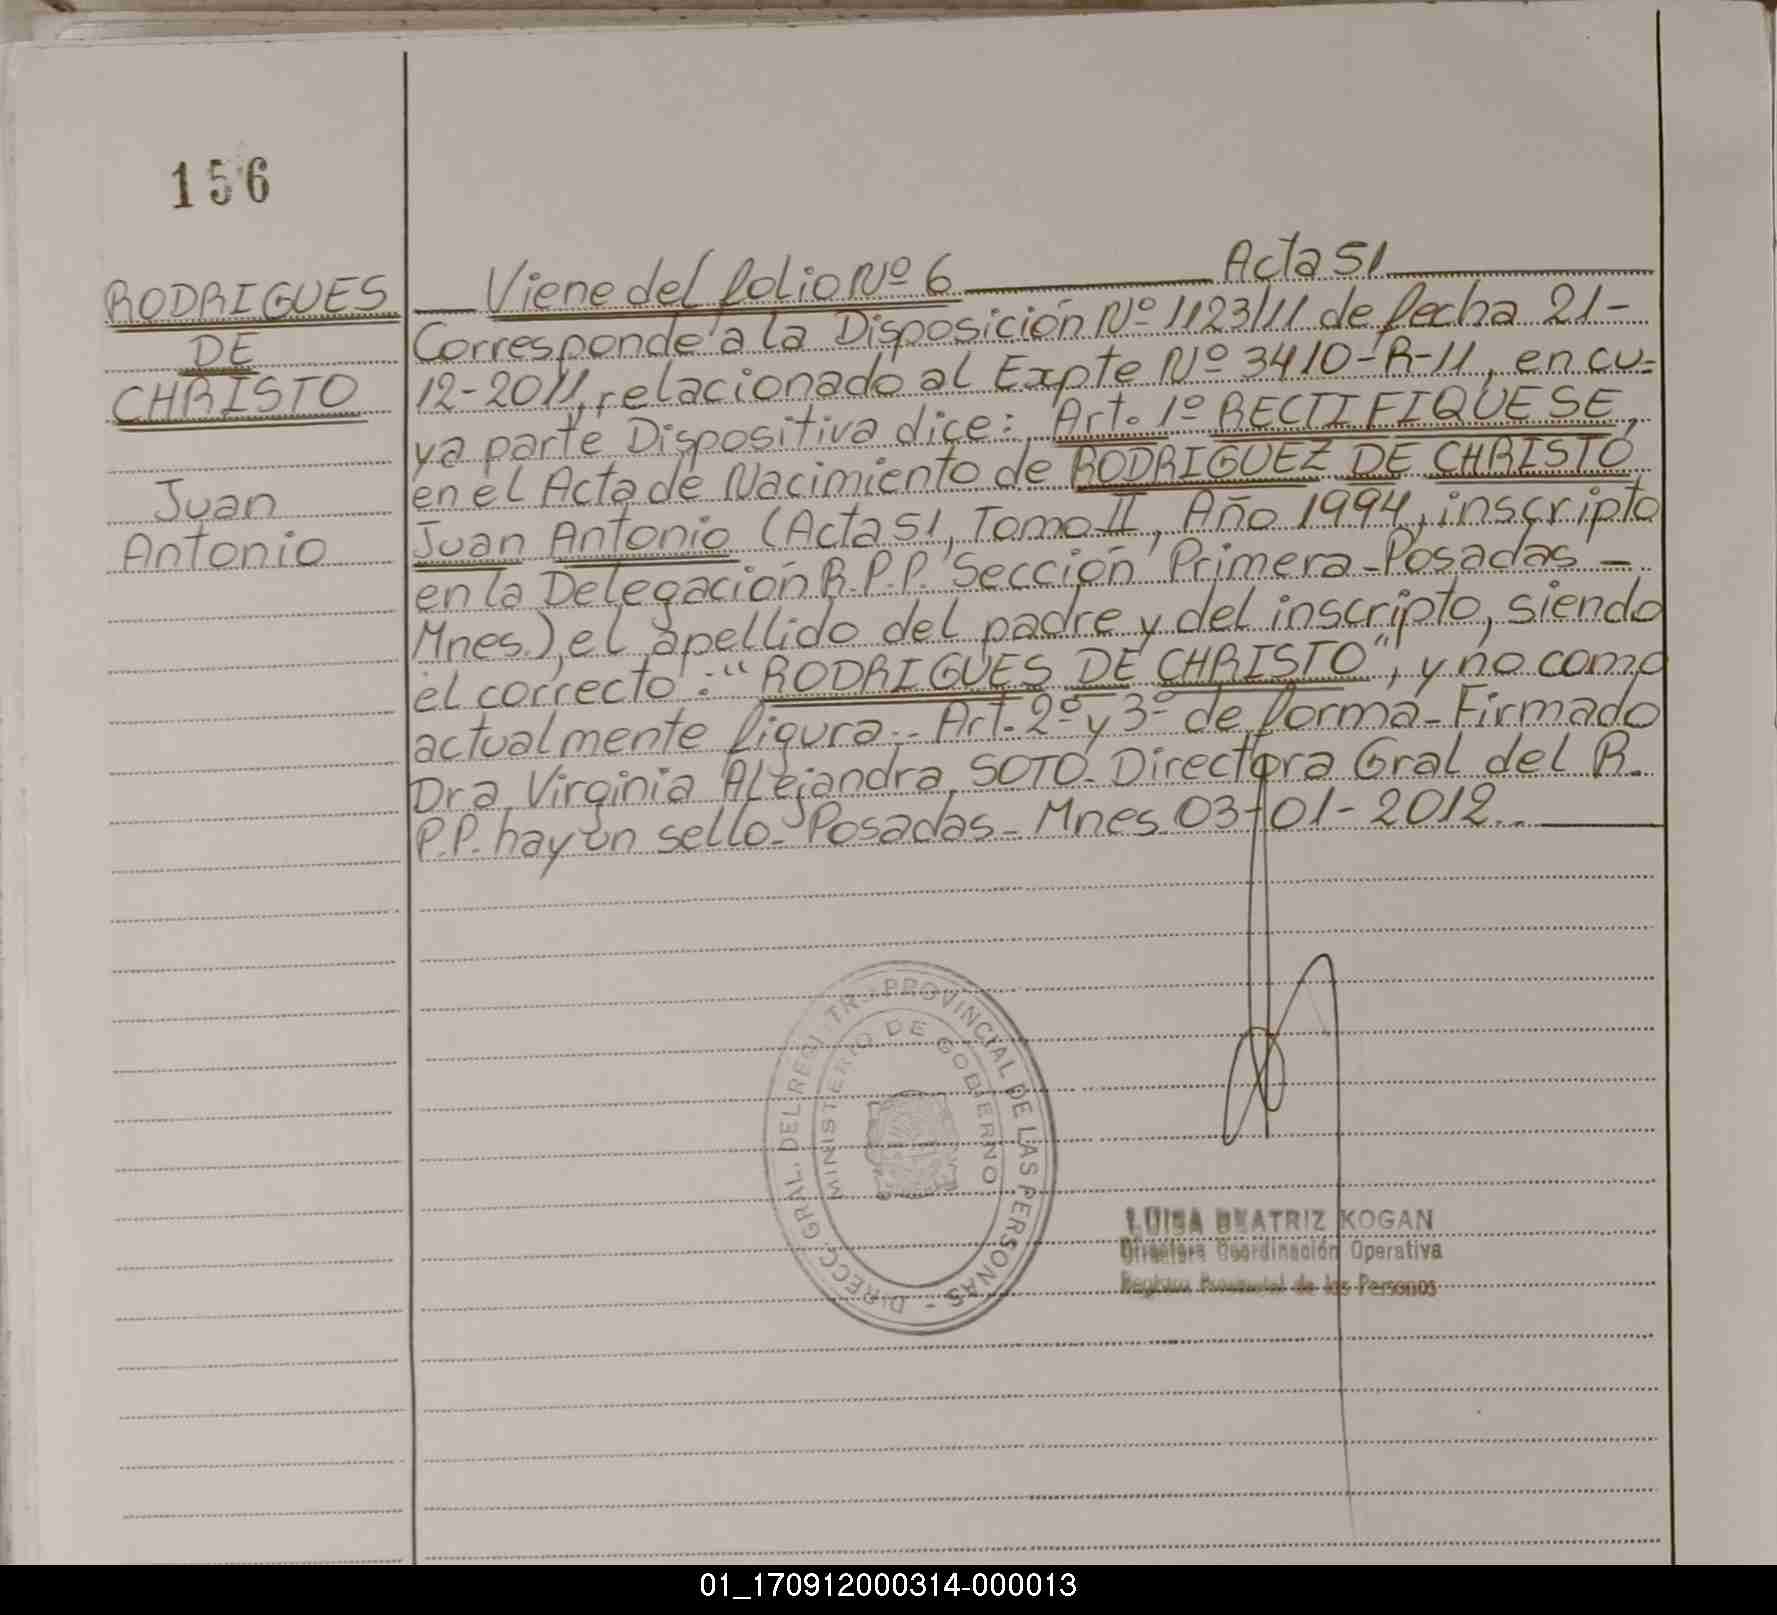 156
RODRIGUES
DE
CHRISTO
Juan
Antonio
Viene del folio Nº 6 Acta 51
Corresponde a la Disposición Nº 1123/11 de fecha 21-
12-2011, relacionado al Expte Nº 3410-R-11, en cu=
ya parte Dispositiva dice: Art. 1º RECTIFIQUESE,
en el Acta de Nacimiento de RODRIGUEZ DE CHRISTO
Juan Antonio (Acta 51, Tomo II, Año 1994, inscripto
en la Delegación R.P.P. Sección Primera-Posadas-
Mnes.), el apellido del padre y del inscripto, siendo
el correcto: "RODRIGUES DE CHRISTO", y no como
actualmente figura.- Art. 2º y 3º de forma- Firmado
Dra. Virginia Alejandra SOTO- Directora Gral del R.
P.P. hay un sello- Posadas- Mnes 03-01-2012.-
DIRECC. GRAL. DEL REGISTRO PROVINCIAL DE LAS PERSONAS -
MINISTERIO DE GOBIERNO
LUISA BEATRIZ KOGAN
Directora Coordinación Operativa
Registro Provincial de las Personas
01_170912000314-000013